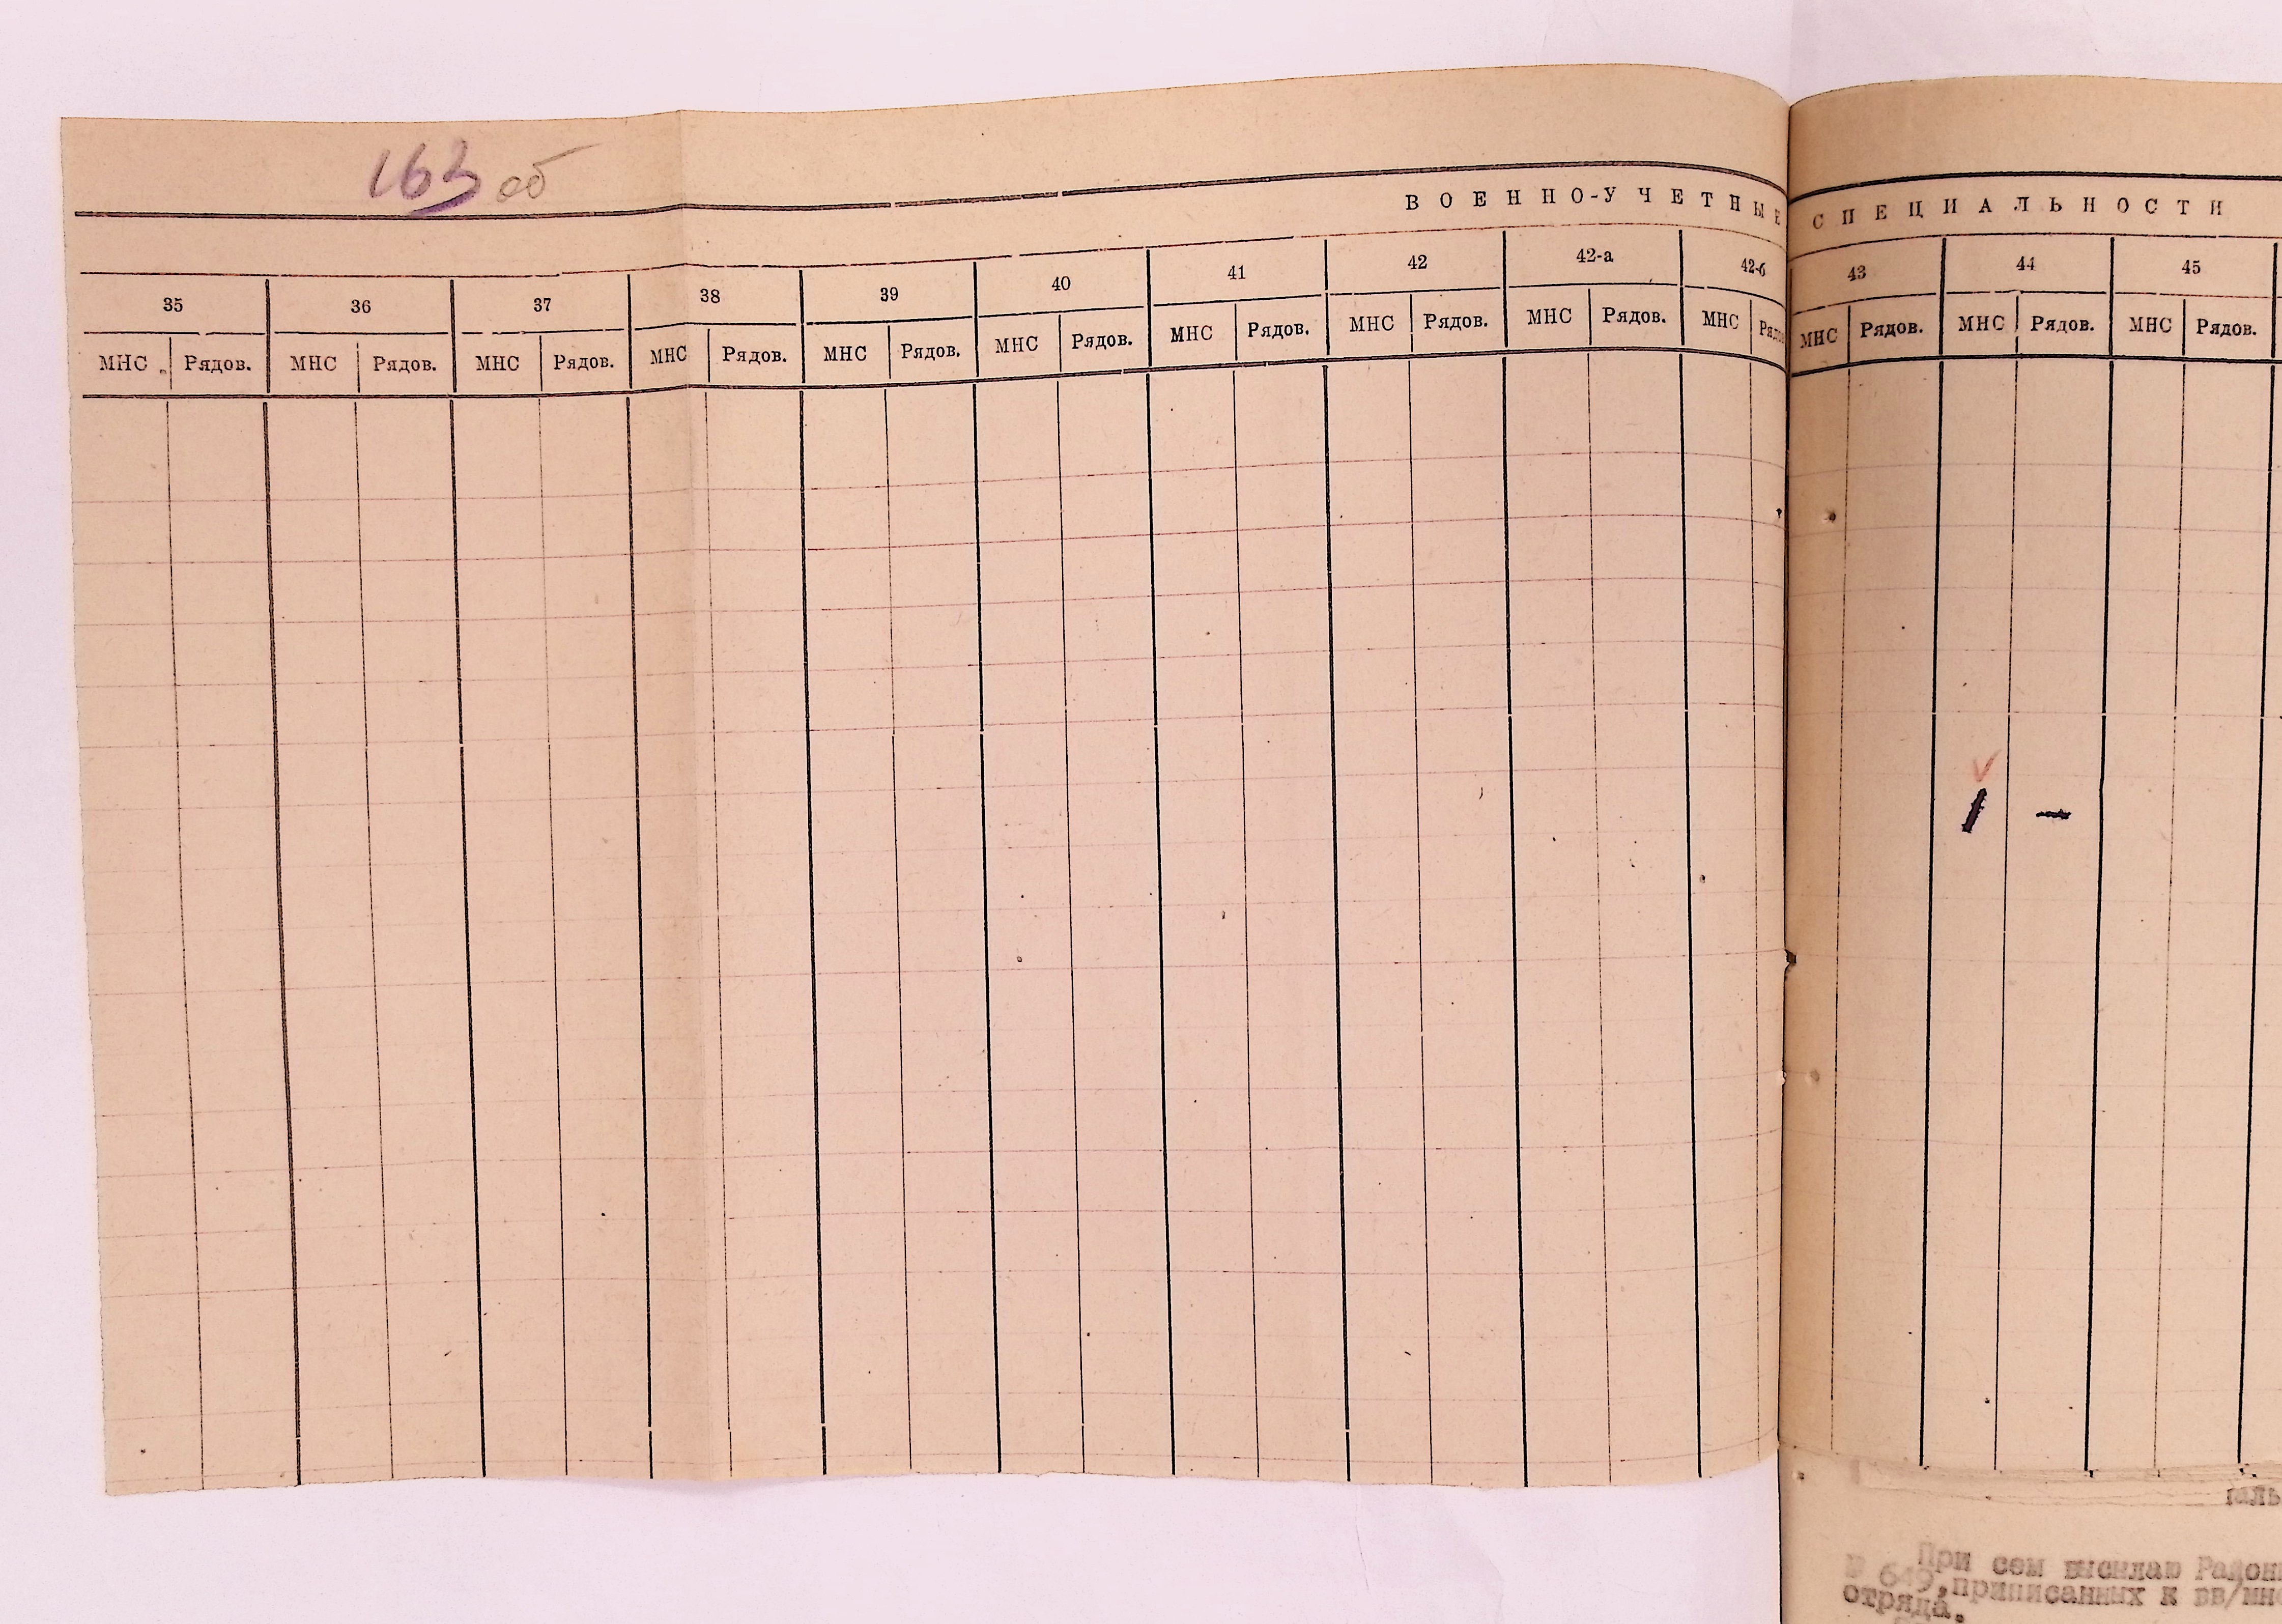 163 об
ВОЕННО-УЧЕТНЫЕ СПЕЦИАЛЬНОСТИ
35 36 37 38 39 40 41 42 42-а 42-б 43 44 45
МНС Рядов. МНС Рядов. МНС Рядов. МНС Рядов. МНС Рядов. МНС Рядов. МНС Рядов. МНС Рядов. МНС Рядов. МНС Рядов МНС Рядов. МНС Рядов. МНС Рядов.
1 -
При сем высилаю
649, приписанных к вв/
отряда.